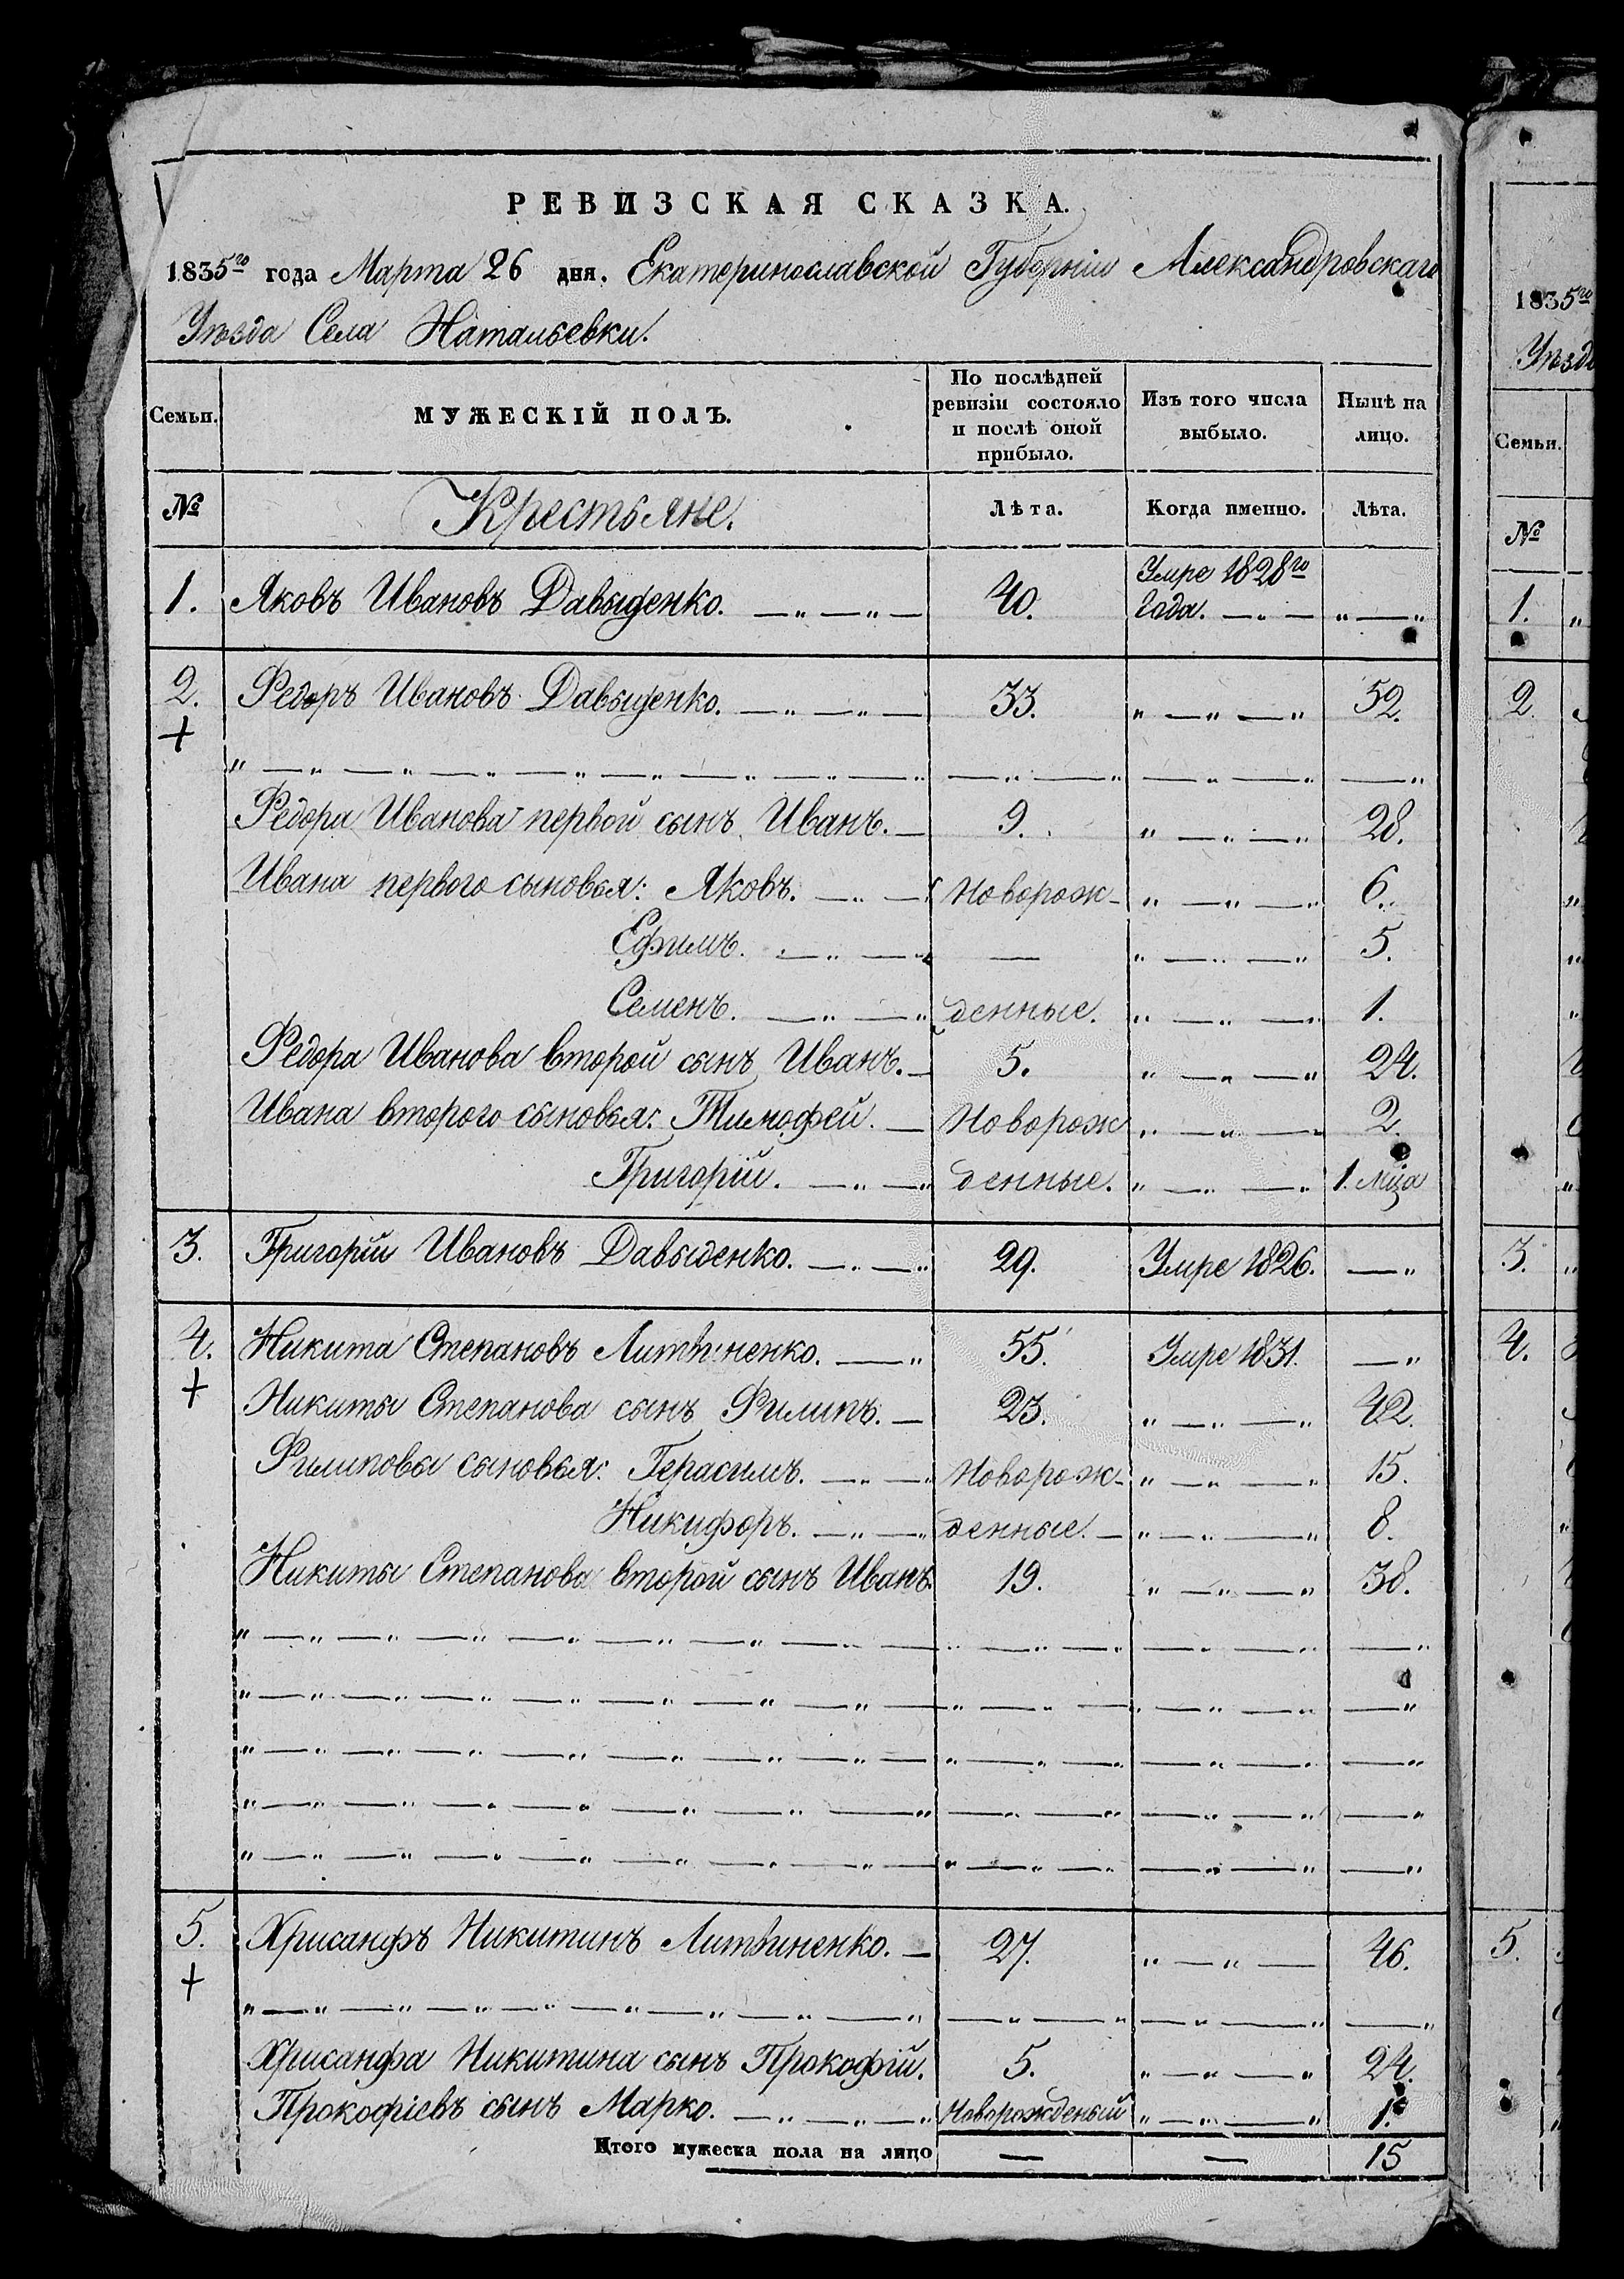 РЕВИЗСКАЯ СКАЗКА.
1835го года Марта 26 дня. Екатеринославской Губерніи Александровскаго
Уѣзда Села Натальевки.
Семьи. МУЖЕСКІЙ ПОЛЪ. По послѣдней ревизіи состояло и послѣ оной прибыло. Изъ того числа выбыло. Нынѣ на лицо.
№ Крестьяне. Лѣта. Когда именно. Лѣта.
1. Яковъ Ивановъ Давыденко. 40. Умре 1828го года.
2. Федоръ Ивановъ Давыденко. 33. 52.
Федора Иванова первой сынъ Иванъ. 9. 28.
Ивана первого сыновья: Яковъ. Новорож- 6.
Ефимъ. — 5.
Семенъ. денные. 1.
Федора Иванова второй сынъ Иванъ. 5. 24.
Ивана второго сыновья: Тимофей. Новорож 2.
Григорій. денные. 1. мца
3. Григорій Ивановъ Давыденко. 29. Умре 1826.
4. Никита Степановъ Литвиненко. 55. Умре 1831.
Никиты Степанова сынъ Филипъ. 23. 42.
Филиповы сыновья: Герасимъ. Новорож- 15.
Никифоръ. денные. 8.
Никиты Степанова второй сынъ Иванъ. 19. 38.
5. Хрисанфъ Никитинъ Литвиненко. 27. 46.
Хрисанфа Никитина сынъ Прокофій. 5. 24.
Прокофіевъ сынъ Марко. Новорожденый 1.
Итого мужеска пола на лицо — — 15
1835го
Уѣзд
Семьи.
№
1.
2.
3.
4.
5.